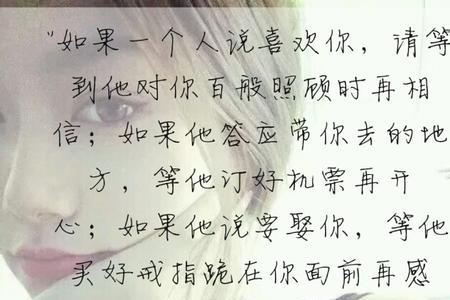 "如果一个人说喜欢你，请等
到他对你百般照顾时再相
信；如果他答应带你去的地
方，等他订好机票再开
心；如果他说要娶你，等他
买好戒指跪在你面前再感